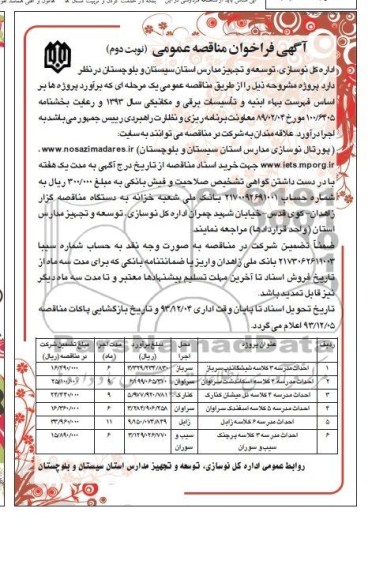 آگهی فراخوان مناقصه عمومی (نوبت دوم)
اداره کل نوسازی، توسعه و تجهیز مدارس استان سیستان و بلوچستان در نظر
دارد پروژه مشروحه ذیل را از طریق مناقصه عمومی یک مرحله ای که برآورد پروژه ها بر
اساس فهرست بهاء ابنیه و تأسیسات برقی و مکانیکی سال ۱۳۹۳ و رعایت بخشنامه
۱۰۰/۶۴۰۵ مورخ ۸۹/۰۲/۰۴ معاونت برنامه ریزی و نظارت راهبردی رییس جمهور می باشد به
اجرا درآورد. علاقه مندان به شرکت در مناقصه می توانند به سایت:
( پورتال نوسازی مدارس استان سیستان و بلوچستان) www.nosazimadares.ir ،
www.iets.mporg.ir جهت خرید اسناد مناقصه از تاریخ درج آگهی به مدت یک هفته
با در دست داشتن گواهی تشخیص صلاحیت و فیش بانکی به مبلغ ۳۰۰/۰۰۰ ریال به
شماره حساب ۲۱۷۰۰۹۲۶۹۱۰۰۱ بانک ملی شعبه خزانه به دستگاه مناقصه گزار
زاهدان- کوی قدس- خیابان شهید چمران اداره کل نوسازی، توسعه و تجهیز مدارس
استان (واحد قراردادها) مراجعه نمایند.
ضمناً تضمین شرکت در مناقصه به صورت وجه نقد به حساب شماره سیبا
۲۱۷۳۰۶۲۶۱۱۰۰۳ بانک ملی زاهدان و اریز یا ضمانتنامه بانکی که برای مدت سه ماه از
تاریخ فروش اسناد تا آخرین مهلت تسلیم پیشنهادها معتبر و تا مدت سه ماه دیگر
نیز قابل تمدید باشد.
تاریخ تحویل اسناد تا پایان وقت اداری ۹۳/۱۲/۰۴ و تاریخ بازگشایی پاکات مناقصه
۹۳/۱۲/۰۵ اعلام می گردد.
ردیف عنوان پروژه محل اجرا مبلغ برآورد (ریال) مدت اجرا (ماه) مبلغ تضمین شرکت در مناقصه (ریال)
۱ احداث مدرسه ۳ کلاسه سرباز ۶
۲ احداث مدرسه ۴ کلاسه سراوان ۹
۳ احداث مدرسه ۴ کلاسه کنارک ۹
۴ احداث مدرسه ۵ کلاسه سراوان ۶
۵ احداث مدرسه ۶ کلاسه زابل زابل ۱۱
۶ احداث مدرسه ۳ کلاسه سیب و سوران سیب و سوران ۶
روابط عمومی اداره کل نوسازی، توسعه و تجهیز مدارس استان سیستان و بلوچستان
ParsNamadData